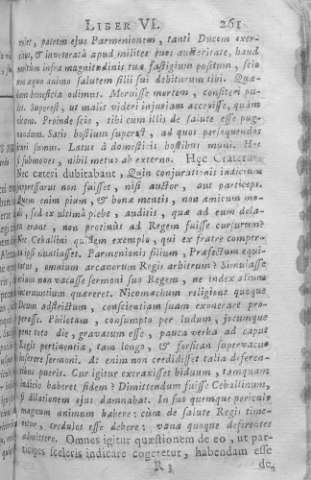 LIBER VI. 261
niet, patrem ejus Parmenionem, tanti Ducem exer-
citus, & inveterata apud milites tuos auctoritate, haud
multum infra magnitudinis tuæ fastigium positum, sciu
non æquo animo salutem filii sui debiturum tibi. Quæ-
dam beneficia odimus. Meruisse mortem, confiteri pu-
det. Superest, ut malit videri injuriam accepisse, quàm
vitam. Proinde scio, tibi cum illis de salute esse pug-
nandum. Satis hostium superest, ad quos persequendos
ituri sumus. Latus à domesticis hostibus muni. Hos
si submoves, nihil metuo ab externo. Hæc Craterus.
Nec cæteri dubitabant, Quin conjurationis indicium
suppressurus non fuisset, nisi auctor, aut particeps.
Quem enim pium, & bonæ mentis, non amicum mo-
dò, sed ex ultima plebe, auditis, quæ ad eum dela-
ta erant, non protinùs ad Regem fuisse cursurum?
Nec Ceballini quidem exemplo, qui ex fratre comper-
ta ipsi nuntiasset. Parmenionis filium, Præfectum equi-
tatus, omnium arcanorum Regis arbitrum? Simulasse
etiam non vacasse sermoni suo Regem, ne index alium
internuntium quæreret. Nicomachum religione quoque
Deum adstrictum, conscientiam suam exonerare pro-
perasse. Philotam, consumpto per ludum, jocumque
penè toto die, gravatum esse, pauca verba ad caput
Regis pertinentia, tam longo, & forsitan supervacuo
inserere sermoni. At enim non credidisset talia deferen-
tibus pueris. Cur igitur extraxisset biduum, tamquam
indicio haberet fidem? Dimittendum fuisse Ceballinum,
si dilationem ejus damnabat. In suo quemque periculo
magnum animum habere: cùm de salute Regis time-
retur, credulos esse debere: vana quoque deferentes
admittere. Omnes igitur quæstionem de eo, ut par-
ticipes sceleris indicare cogeretur, habendam esse
R 3 de-